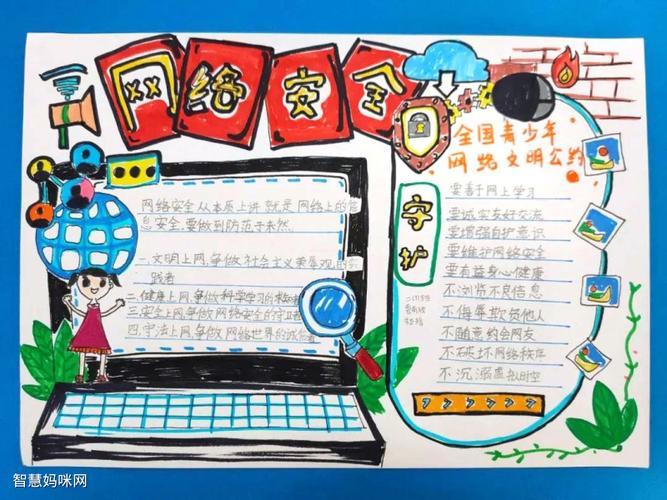 网络安全
全国青少年
网络文明公约
守护
网络安全从本质上讲就是网络上的信
息安全,要做到防范于未然
一.文明上网,争做社会主义荣辱观的
践者
二.健康上网,争做科学学习的
三安全上网,争做网络安全的守卫者
四.守法上网,争做网络世界的诚信
要善于网上学习
要诚实友好交流
要增强自护意识
要维护网络安全
要有益身心健康
不浏览不良信息
不侮辱欺负他人
不随意约会网友
不破坏网络秩序
不沉溺虚拟时空
智慧妈咪网